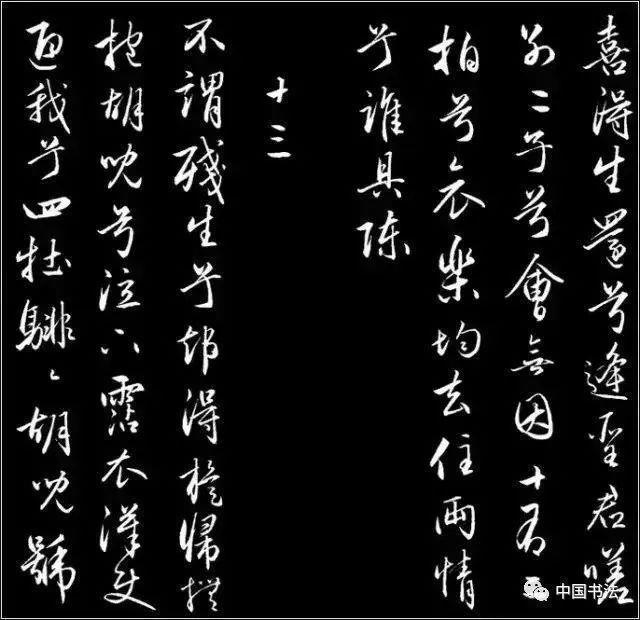 喜得生還兮逢聖君嗟
別二子兮會無因十有
拍兮哀樂均去住兩情
兮誰具陳
十三
不謂殘生兮却得旋歸撫
抱胡兒兮泣下霑衣漢使
迎我兮四牡騑々胡兒號
中国书法